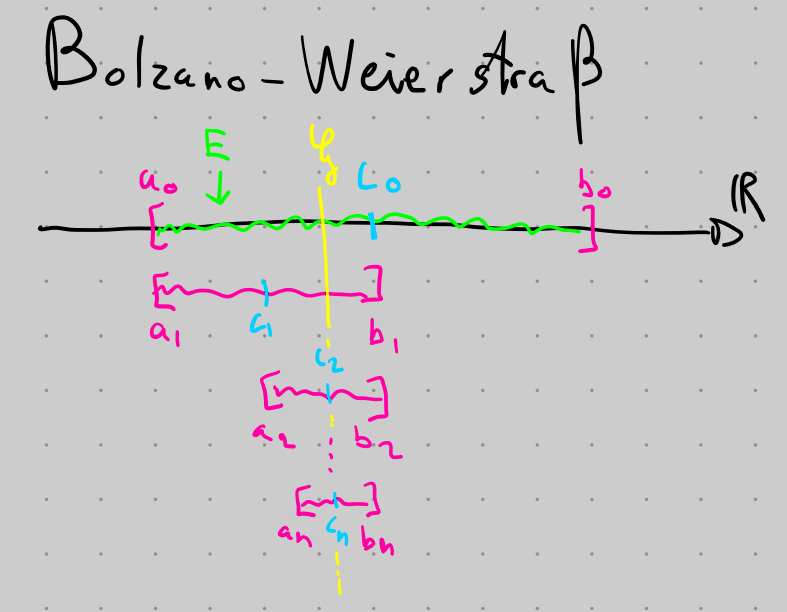 Bolzano-Weierstraß
E
a₀ [ C₀ ] b₀ ℝ
a₁ C₁ b₁
C₂
a₂ b₂
aₙ Cₙ bₙ